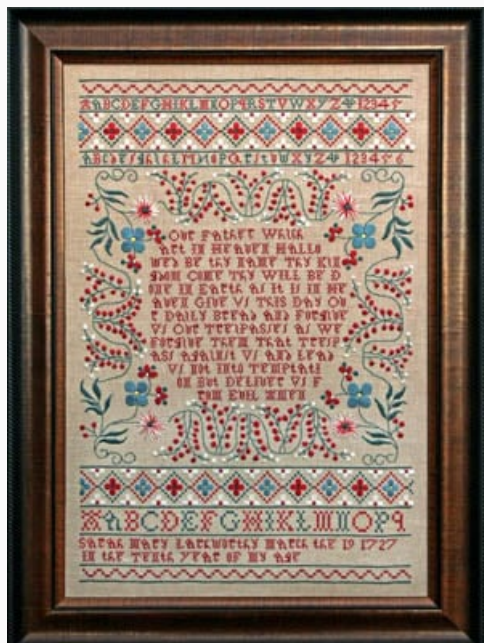 ABCDEFGHIKLMNOPQRSTVWXYZ 12345
ABCDEFGHIKLMNOPQRSTUWXYZ 123456
Our Father Which
Art in Heaven Hallo
wed be thy name Thy Kin
gdom Come Thy Will be D
one in Earth as it is in He
aven Give Vs This Day Ou
r Daily Bread and Forgive
Vs Our Trespasses as We
Forgive Them That Tresp
ass against Vs and Lead
Vs not into Temptati
on But Deliver Vs F
rom Evil Amen
ABCDEFGHIKLMNOPQ
Sarah Mary Lackworthy March the 19 1727
in the Tenth year of my age